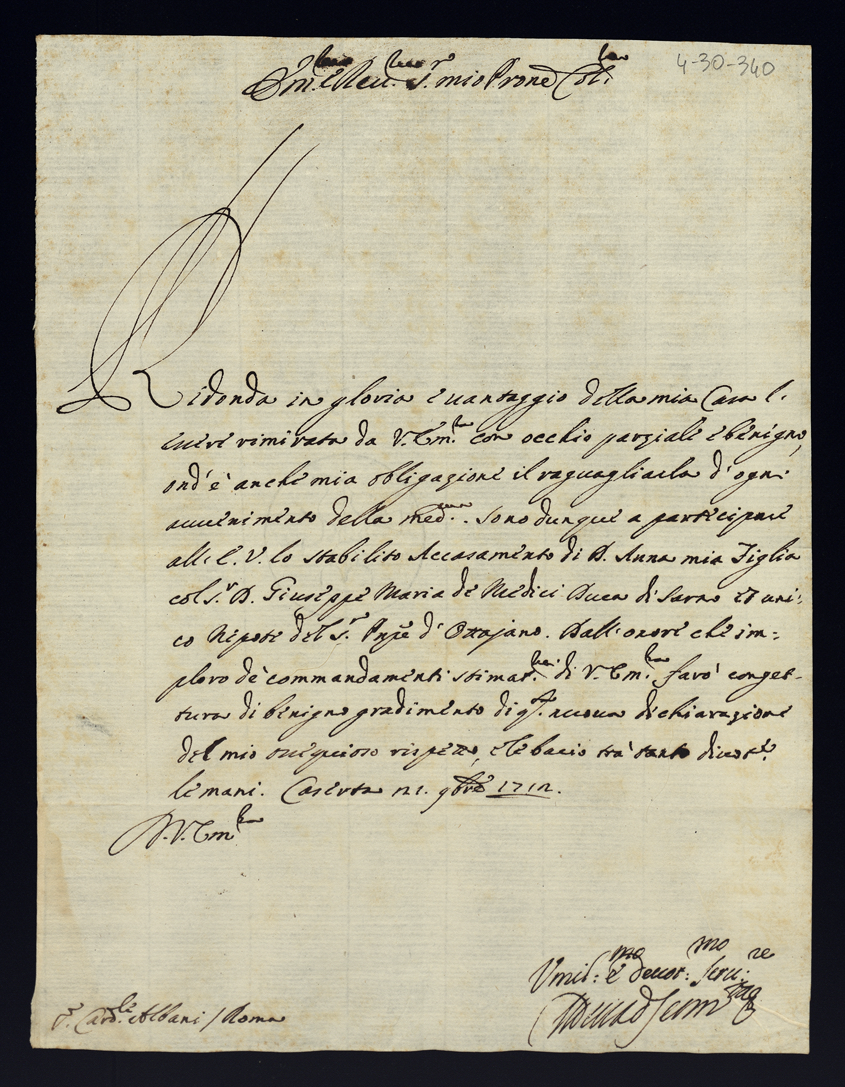 4-30-340
Em.mo e Reu.mo S.r mio Prone Col.mo
Ridonda in gloria e uantaggio della mia Casa l'
essere rimirata da V. Em.za con occhio parziale e benigno,
ond' è anche mia obligazione il raguagliarla d' ogni
auuenimento della med.ma. Sono dunque a partecipare
all' E. V. lo stabilito Accasamento di D. Anna mia Figlia
col S.r D. Giuseppe Maria de Medici Duca di Sarno et uni-
co Nipote del S.r Pnpe d' Ottajano. Dall' onore che im-
ploro de commandamenti stimat.mi di V. Em.za farò conget-
tura di benigno gradimento di q.ta nuoua dichiarazione
del mio ossequioso rispetto, e le bacio trà tanto diuot.te
le mani. Caserta 21. 9bre 1712.
D. V. Em.za
Vmil: mo e deuot: mo Seru: re
S.r Card.le Albani / Roma